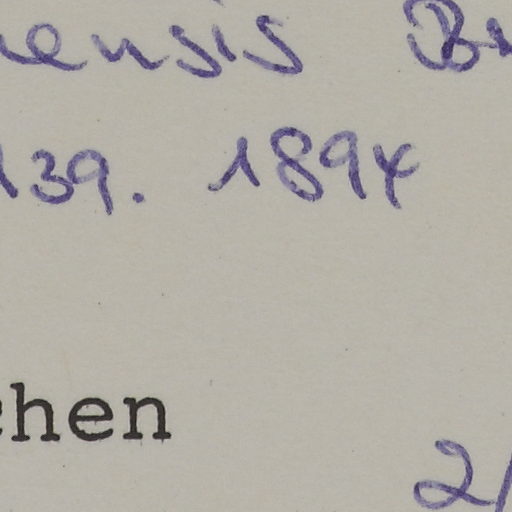 ensis Br
139. 1894
chen
2/